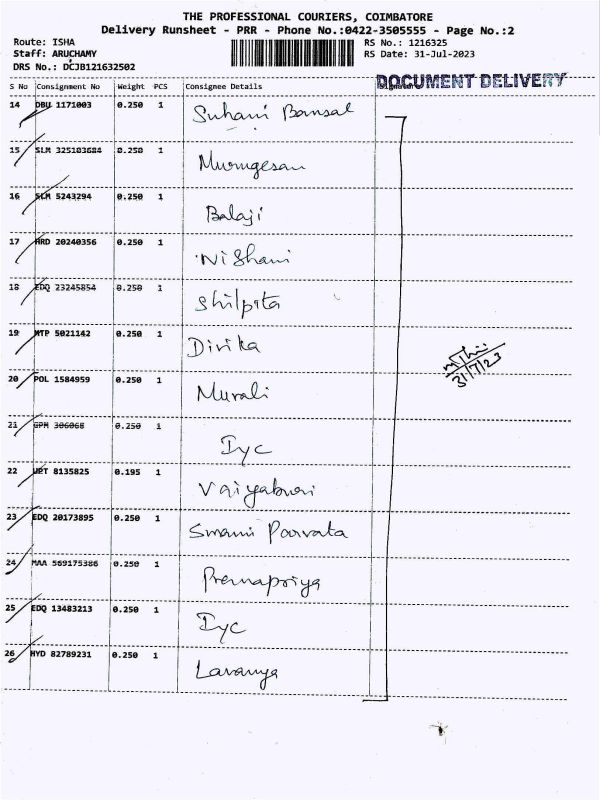 THE PROFESSIONAL COURIERS, COIMBATORE
Delivery Runsheet - PRR - Phone No.:0422-3505555 - Page No.:2
Route: ISHA RS No.: 1216325
Staff: ARUCHAMY RS Date: 31-Jul-2023
DRS No.: DCJB121632502
DOCUMENT DELIVERY
S No Consignment No Weight PCS Consignee Details
14 DBU 1171003 0.250 1 Suhani Bansal
15 SLM 325103684 0.250 1 Murugesan
16 SLM 5243294 0.250 1 Balaji
17 HRD 20240356 0.250 1 Nishani
18 EDQ 23245854 0.250 1 Shilpita
19 MTP 5021142 0.250 1 Divika
20 POL 1584959 0.250 1 Murali
21 GPM 306068 0.250 1 Iyc
22 UPT 8135825 0.195 1
23 EDQ 20173895 0.250 1 Swami Parvata
24 MAA 569175386 0.250 1 Premapriya
25 EDQ 13483213 0.250 1 Iyc
26 HYD 82789231 0.250 1 Lavanya
31/7/23